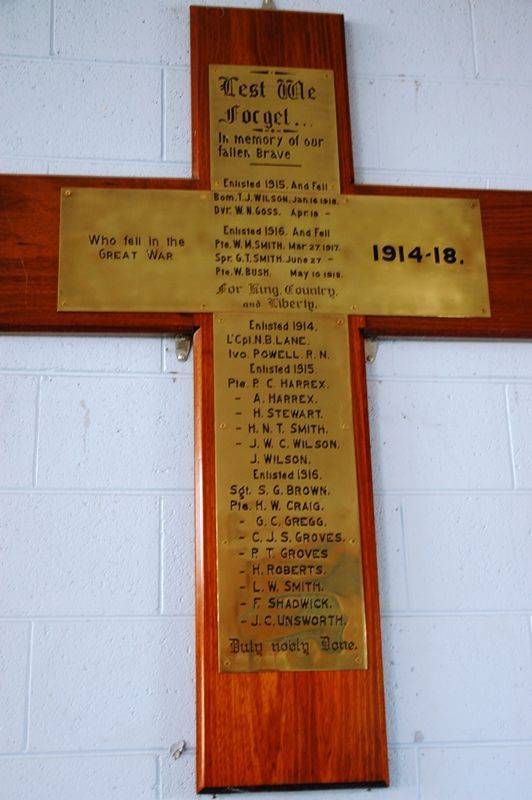 Lest We
Forget...
In memory of our
fallen Brave
Enlisted 1915. And Fell
Bom. T. J. WILSON. Jan 16 1918.
Dvr. W. N. GOSS. Apr 18 -
Enlisted 1916. And Fell
Pte. W. M. SMITH. Mar 27. 1917.
Spr. G. T. SMITH. June 27 -
Pte. W. BUSH. May 10 1918.
For King, Country,
and Liberty.
Who fell in the
GREAT WAR
1914-18.
Enlisted 1914.
L'Cpl. N. B. LANE.
Ivo. POWELL. R. N.
Enlisted 1915
Pte. P. C. HARREX.
- A. HARREX.
- H. STEWART.
- H. N. T. SMITH.
- J. W. C. WILSON.
J. WILSON.
Enlisted 1916.
Sgt. S. G. BROWN.
Pte. H. W. CRAIG.
- G. C. GREGG.
- C. J. S. GROVES.
- P. T. GROVES
- H. ROBERTS.
- L. W. SMITH.
- F. SHADWICK.
- J. C. UNSWORTH.
Duty nobly Done.